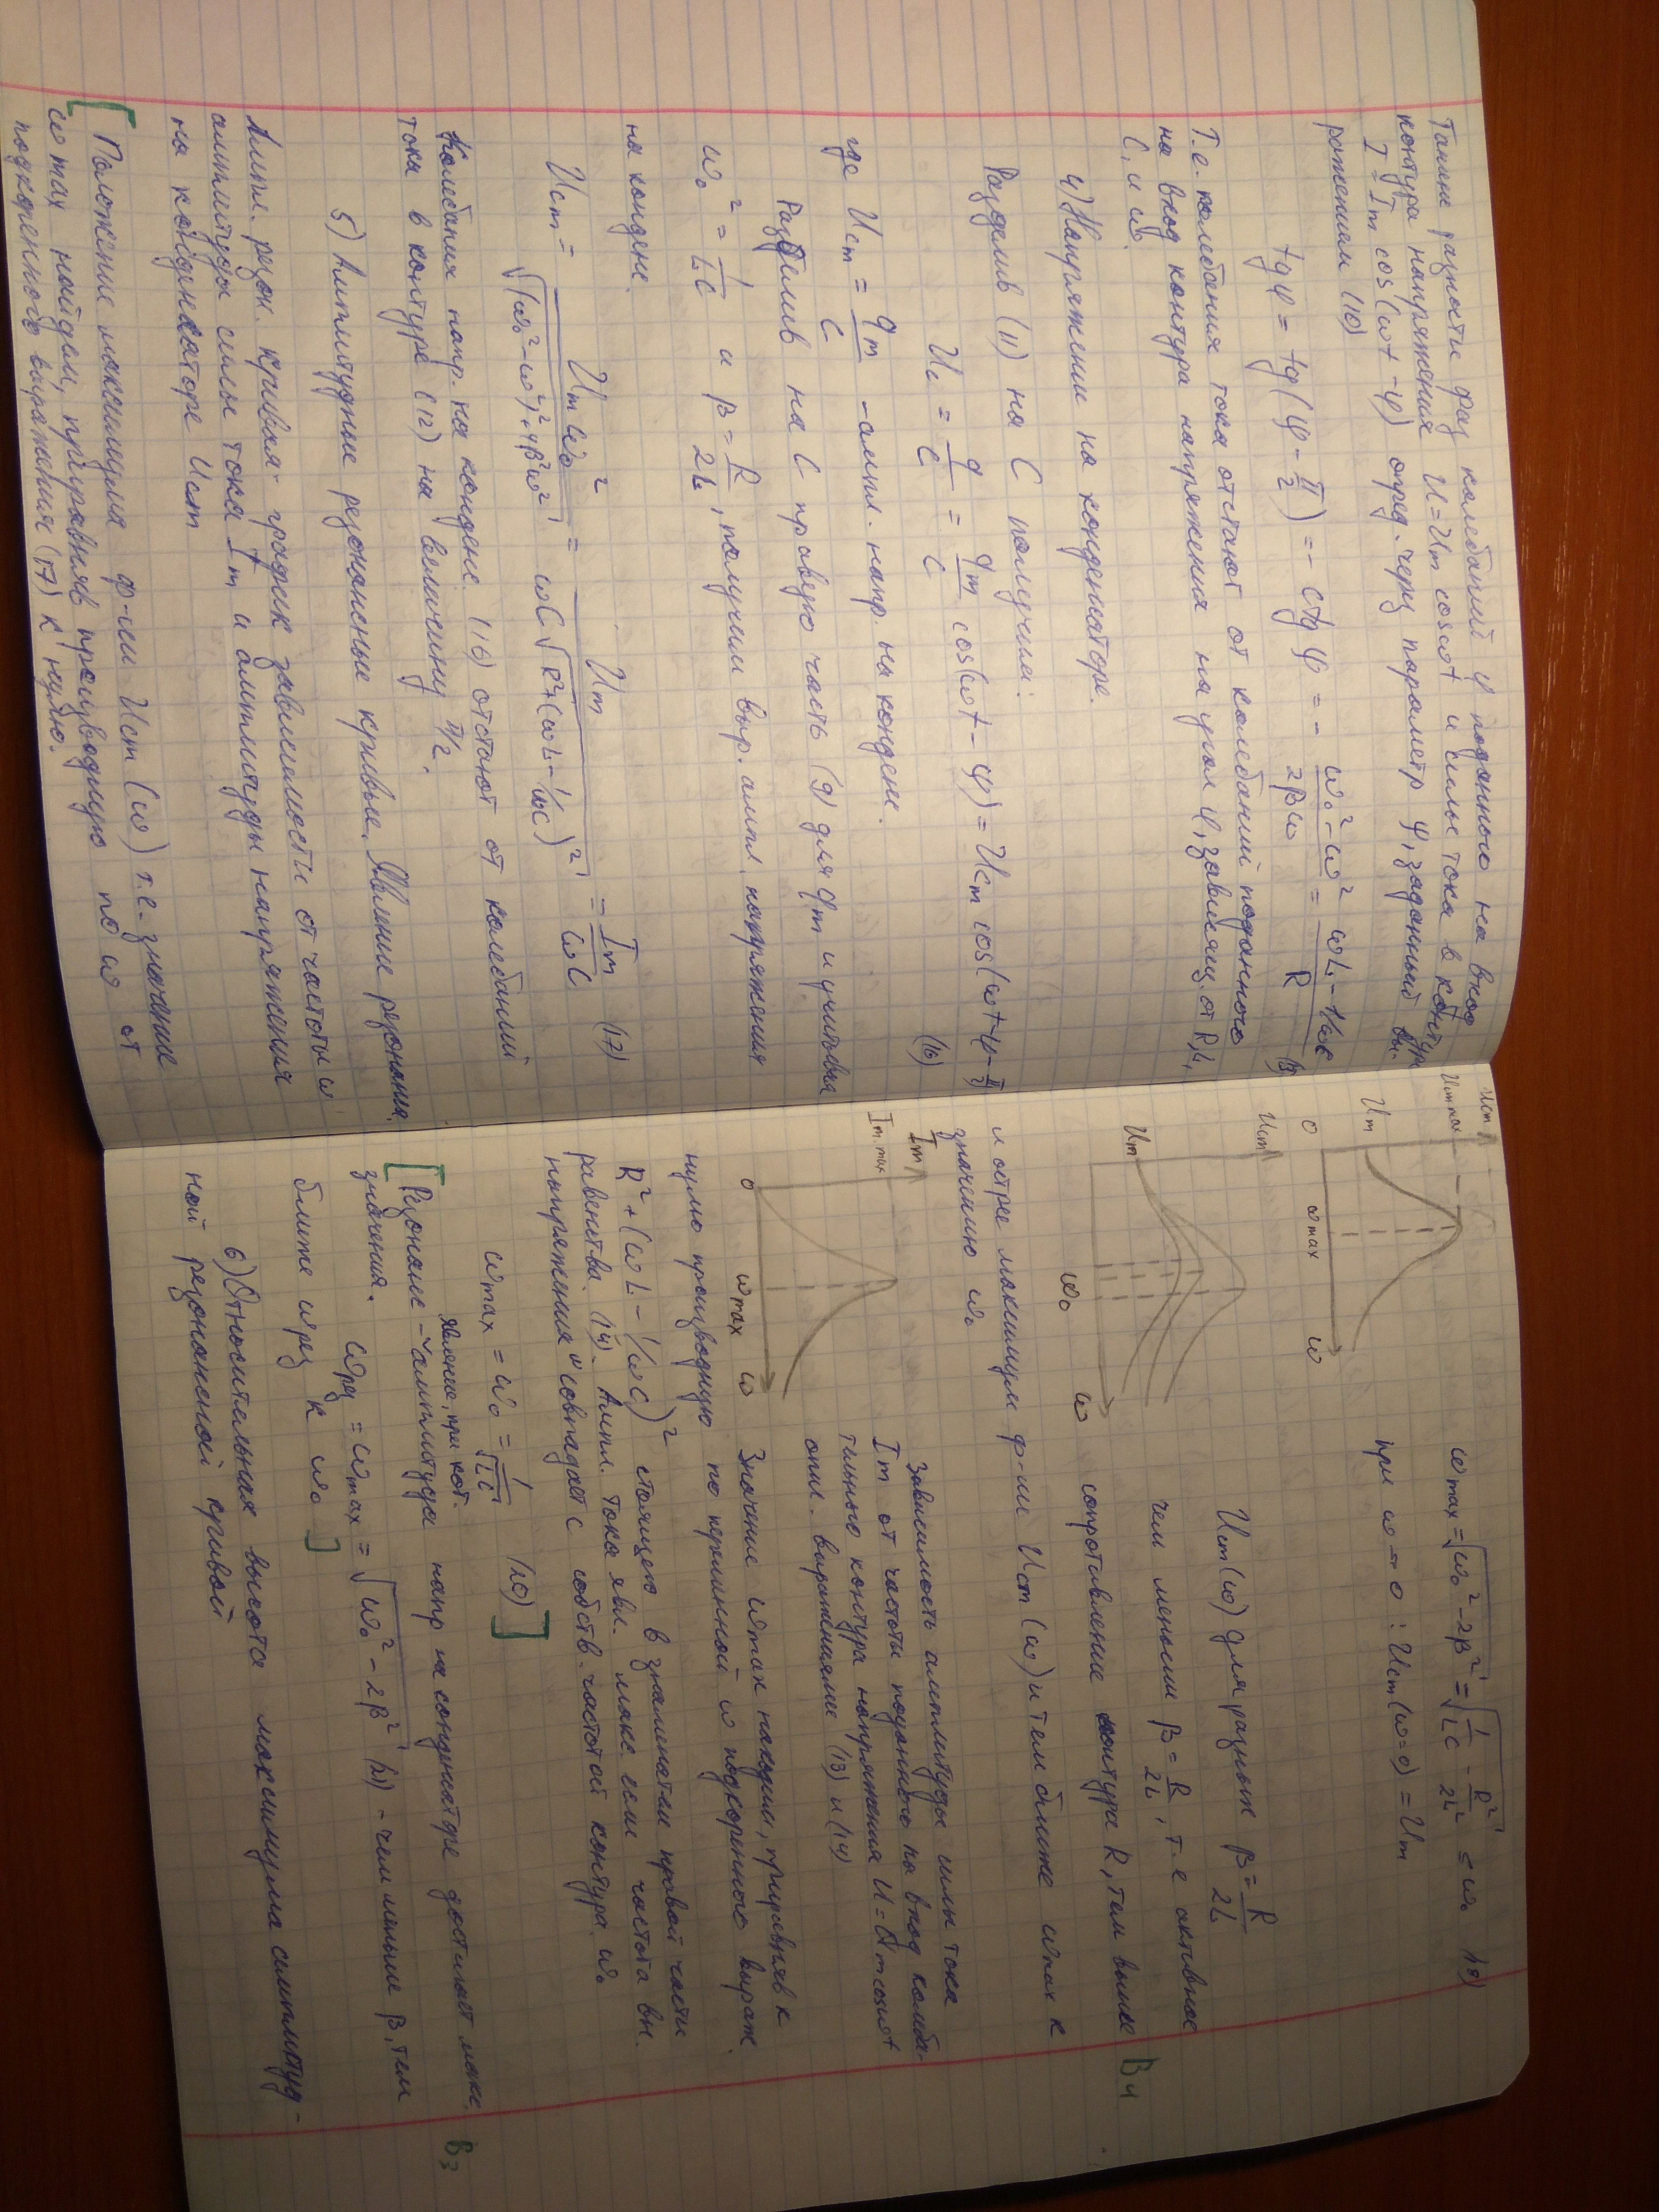 Танген разности фаз колебаний φ поданного на вход
контура напряжения U=Um cosωt и силы тока в контуре
I = Im cos(ωt-φ) опред. через параметр ψ, заданный вы-
ражением (10)
tgφ = tg(ψ - π/2) = - ctg ψ = - (ω₀² - ω²)/(2βω) = (ωL - 1/ωC)/R (13)
Т.е. колебания тока отстают от колебаний поданного
на вход контура напряжения на угол φ, зависящ. от R, L,
C, и ω.
4) Напряжение на конденсаторе.
Разделив (11) на C получим:
Uc = q/C = qm/C cos(ωt - ψ) = Ucm cos(ωt - φ - π/2)
(16)
где Ucm = qm/C - ампл. напр. на конденс.
Разделив на C правую часть (9) для qm и учитывая
ω₀² = 1/LC и β = R/2L, получим выр. ампл. напряжения
на конденс.
Ucm = Um ω₀²/√((ω₀²-ω²)²+4β²ω²) = Um/(ωC√(R²+(ωL-1/ωC)²)) = Im/ωC (17)
Колебания напр. на конденс. (16) отстают от колебаний
тока в контуре (12) на величину π/2.
5) Амплитудные резонансные кривые. Явление резонанса.
Ампл. резон. кривая - график зависимости от частоты ω
амплитуда силы тока Im и амплитуды напряжения
на конденсаторе Ucm
[Положение максимума ф-ии Ucm (ω) т.е. значение
ω max найдем, приравняв производную по ω от
подкоренного выражения (17) к нулю.
Ucm
Ucm max
Um
0 ωmax ω
ωmax = √(ω₀² - 2β²) = √(1/LC - R²/2L²) ≤ ω₀ (18)
при ω → 0 : Ucm(ω=0) = Um
Ucm
Um
ω₀ ω
Ucm(ω) для разных β = R/2L
чем меньше β = R/2L, т.е активное
сопротивление контура R, тем выше
В4
и острее максимум ф-ии Ucm (ω) и тем ближе ωmax к
значению ω₀
Im
Im.max
0 ωmax ω
Зависимость амплитуды силы тока
Im от частоты поданного на вход колеба-
тельного контура напряжения U = Um cosωt
опис. выражениями (13) и (14)
Значение ωmax находим, приравняв к
нулю производную по переменной ω подкоренного выраж.
R²+(ωL - 1/ωC)² стоящего в знаменателе правой части
равенства (14). Ампл. тока явл. макс. если частота вн.
напряжения "совпадает с собств. частотой контура ω₀
ωmax = ω₀ = 1/√LC (20) ]
явление, при кот.
[Резонанс - ˅амплитуда напр на конденсаторе достигает макс.
В3
значения.
ωрез = ωmax = √(ω₀² - 2β²) (21) - чем меньше β, тем
ближе ωрез к ω₀ ]
6) Относительная высота максимума амплитуд-
ной резонансной кривой